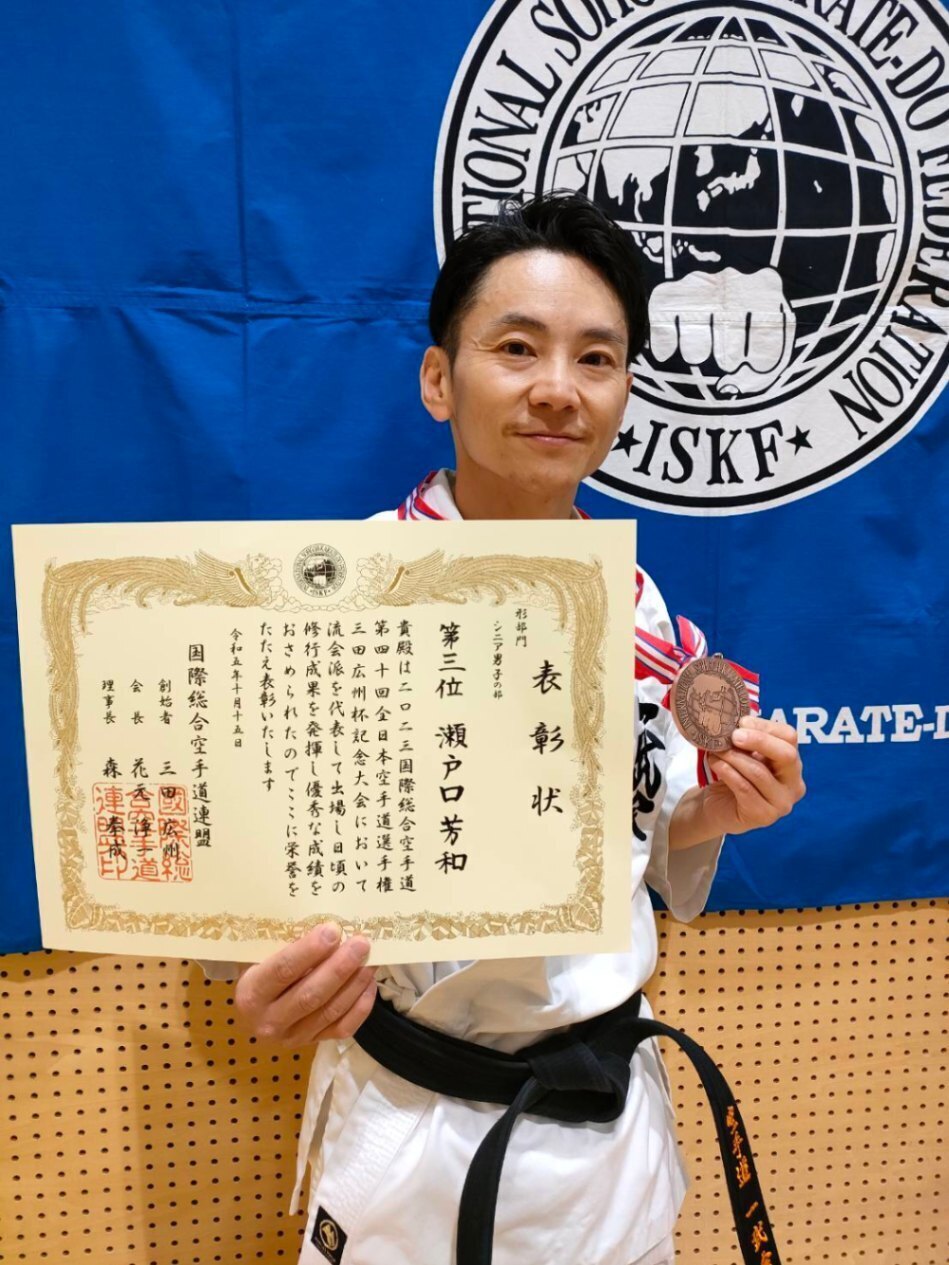 TIONAL SOHG
ARATE-DO FEDERATION
★ISKF★
ARATE-D
表彰状
形部門
シニア男子の部
第三位 瀬戸口芳和
貴殿は二〇二三国際総合空手道
第四十回全日本空手道選手権
三田広州杯記念大会において
流会派を代表して出場し日頃の
修行成果を発揮し優秀な成績を
おさめられたのでここに栄誉を
たたえ表彰いたします
令和五年十月十五日
国際総合空手道連盟
創始者 三田広州
会長 花元淳一
理事長 森
ISKF
ISKF
空手道 一武